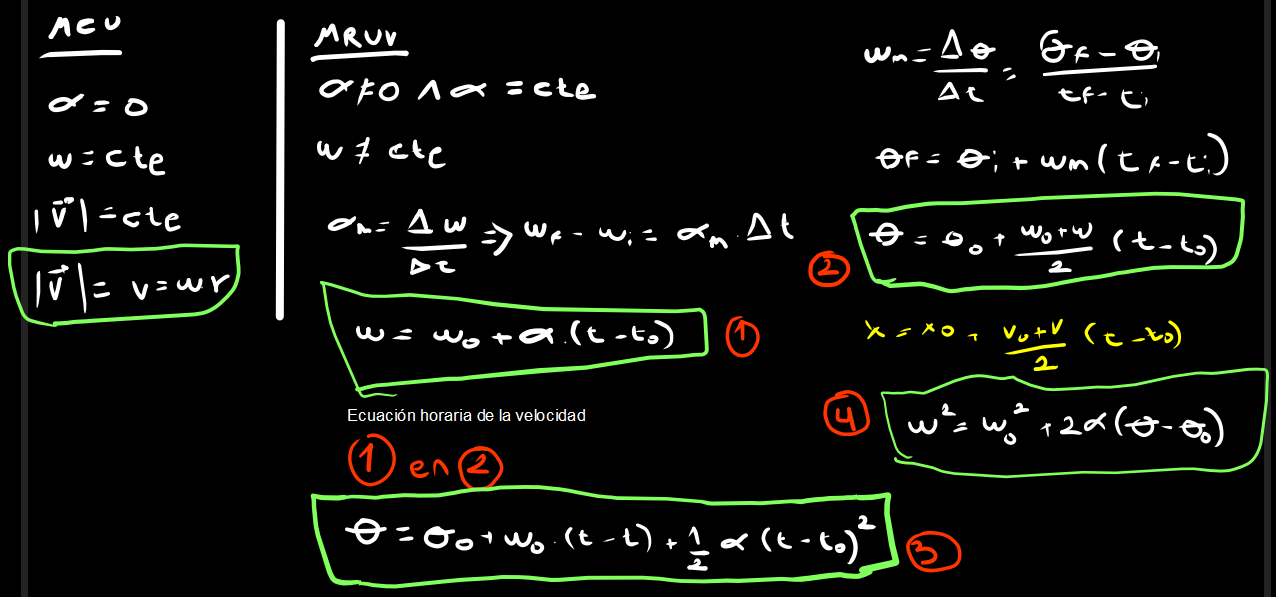 MCU
α = 0
w = cte
|v⃗| = cte
|v⃗| = v = wr
MRUV
α ≠ 0 ∧ α = cte
w ≠ cte
αm = Δw/Δt => wf - wi = αm . Δt
w = w0 + α.(t - t0) ①
Ecuación horaria de la velocidad
① en ②
θ = θ0 + w0 . (t - t) + 1/2 α (t - t0)² ③
wm = Δθ/Δt = (θf - θi)/(tf - ti)
θf = θi + wm (tf - ti)
② θ = θ0 + (w0 + w)/2 (t - t0)
x = x0 + (v0 + v)/2 (t - t0)
④ w² = w0² + 2α(θ - θ0)